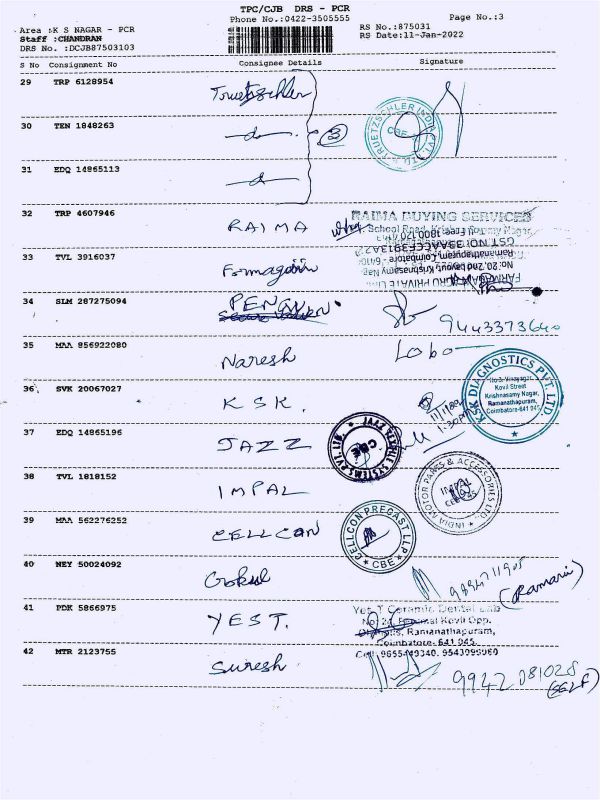 TPC/CJB DRS - PCR
Phone No.:0422-3505555
Page No.:3
Area :K S NAGAR - PCR
RS No.:875031
Staff :CHANDRAN
RS Date:11-Jan-2022
DRS No. :DCJB87503103
S No Consignment No Consignee Details Signature
29 TRP 6128954 Truetzschler
TRUETZSCHLER INDIA PVT. LTD.
CBE
30 TEN 1848263 3
31 EDQ 14865113
32 TRP 4607946 RAIMA
RAIMA BUYING SERVICES
School Road, Krishnasamy Nagar,
33 TVL 3916037
No:20, 2nd Layout, Krishnasamy Nagar
Ramanathapuram, Coimbatore
34 SLM 287275094
9443373640
35 MAA 856922080 Naresh Lobo
36 SVK 20067027 KSK.
KSK DIAGNOSTICS PVT. LTD.
Kovil Street
Krishnasamy Nagar,
Ramanathapuram,
Coimbatore-641 045
1.30PM
37 EDQ 14865196 JAZZ
CBE
38 TVL 1818152 IMPAL
INDIA MOTOR PARTS & ACCESSORIES LTD.
IMPAL
39 MAA 562276252 CELLCON
CELLCON PRECAST LLP
CBE
40 NEY 50024092 Gokul
(Ramani)
41 PDK 5866975 YEST.
Yes T Ceramic Dental Lab
Kovil Opp.
Ramanathapuram,
Coimbatore-641 045
42 MTR 2123755 Suresh
9942081028
(SELF)